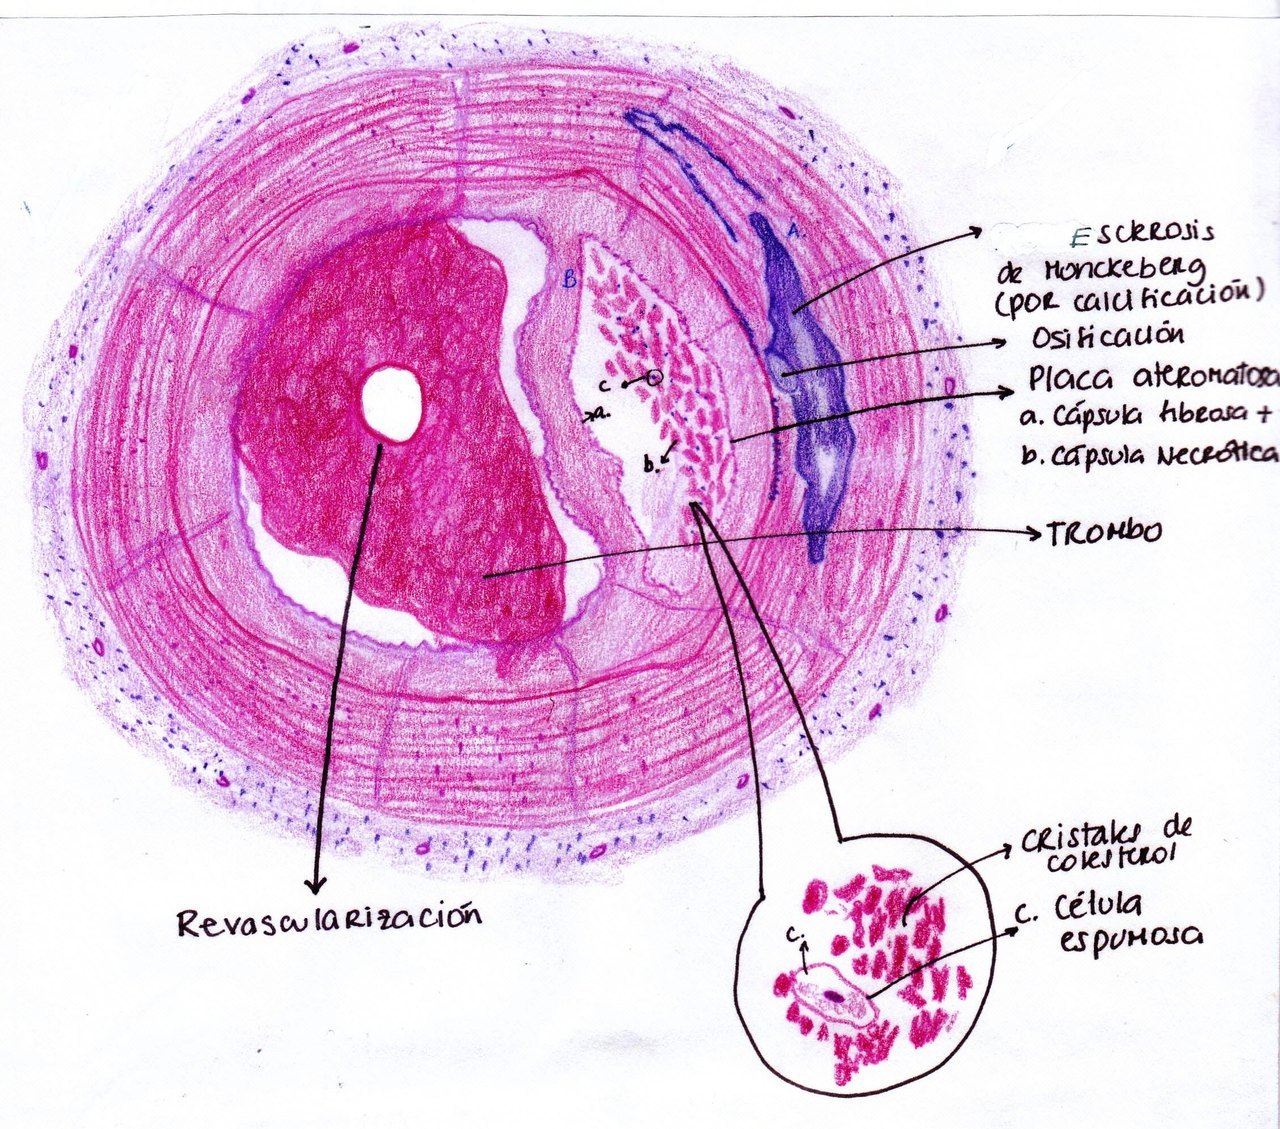 A.
B
c
a.
b.
Esclerosis
de Monckeberg
(por calcificación)
Osificación
Placa ateromatosa
a. Cápsula fibrosa +
b. Cápsula Necrótica
TROMBO
Revascularización
cristales de
colesterol
c. Célula
espumosa
c.